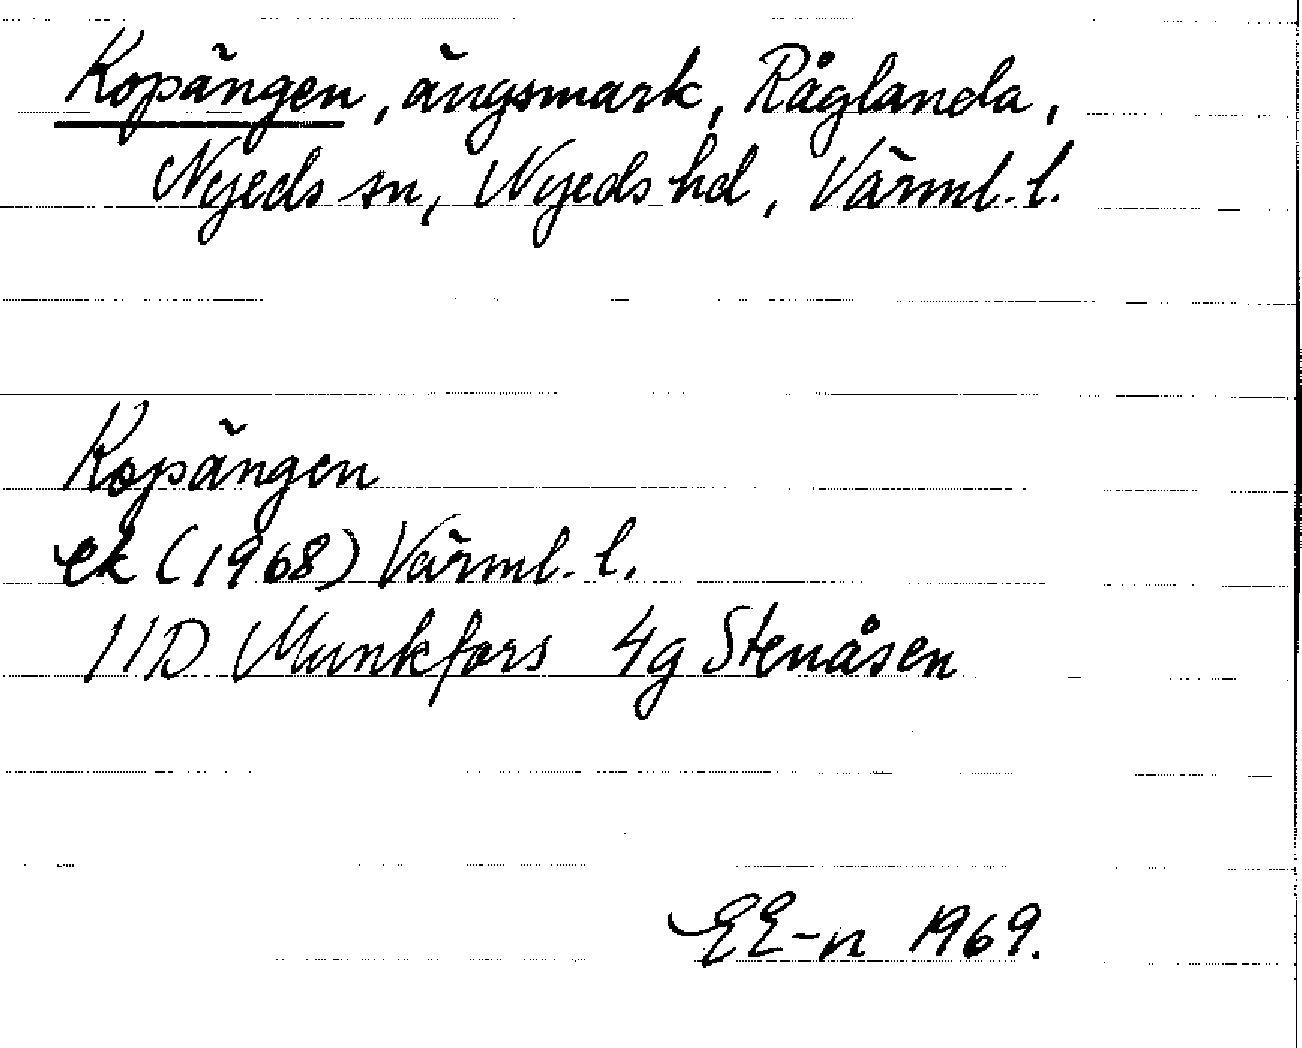 Kopängen, ängsmark, Råglanda,
Nyeds sn, Nyeds hd, Värml. l.
Kopängen
ek (1968) Värml. l.
11D Munkfors 4g Stenåsen
EE-n 1969.